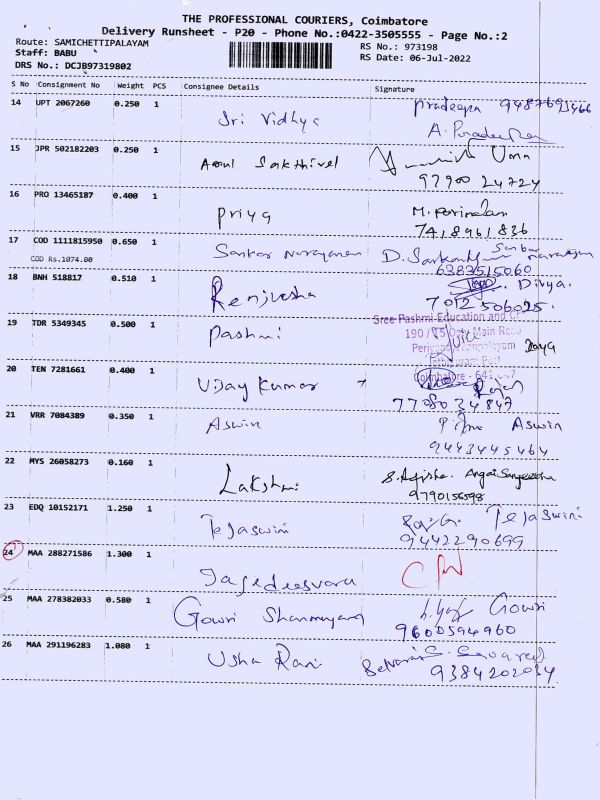 THE PROFESSIONAL COURIERS, Coimbatore
Delivery Runsheet - P20 - Phone No.:0422-3505555 - Page No.:2
Route: SAMICHETTIPALAYAM RS No.: 973198
Staff: BABU RS Date: 06-Jul-2022
DRS No.: DCJB97319802
S No Consignment No Weight PCS Consignee Details Signature
14 UPT 2067260 0.250 1 Sri Vidhya Pradeepa
15 JPR 502182203 0.250 1 Arul Sakthivel Uma
97900 24724
16 PRO 13465187 0.400 1 Priya
7418961836
17 COD 1111815950 0.650 1 Sankar Narayanan
COD Rs.1074.00 6383515060
18 BNH 518817 0.510 1 Divya.
7012506025.
19 TDR 5349345 0.500 1 Pashmi
Sree Pashmi Education and
Main Road
20 TEN 7281661 0.400 1 Vijay Kumar Rajan
Coimbatore - 641
7708034847
21 VRR 7084389 0.350 1 Aswin Aswin
9443445464
22 MYS 26058273 0.160 1 Lakshmi
9790156598
23 EDQ 10152171 1.250 1 Tejaswini Tejaswini
9442290699
24 MAA 288271586 1.300 1 Jagedeesvara
25 MAA 278382033 0.580 1 Gowri Shanmugam Gowri
9600594960
26 MAA 291196283 1.080 1 Usha Rani
9384202034